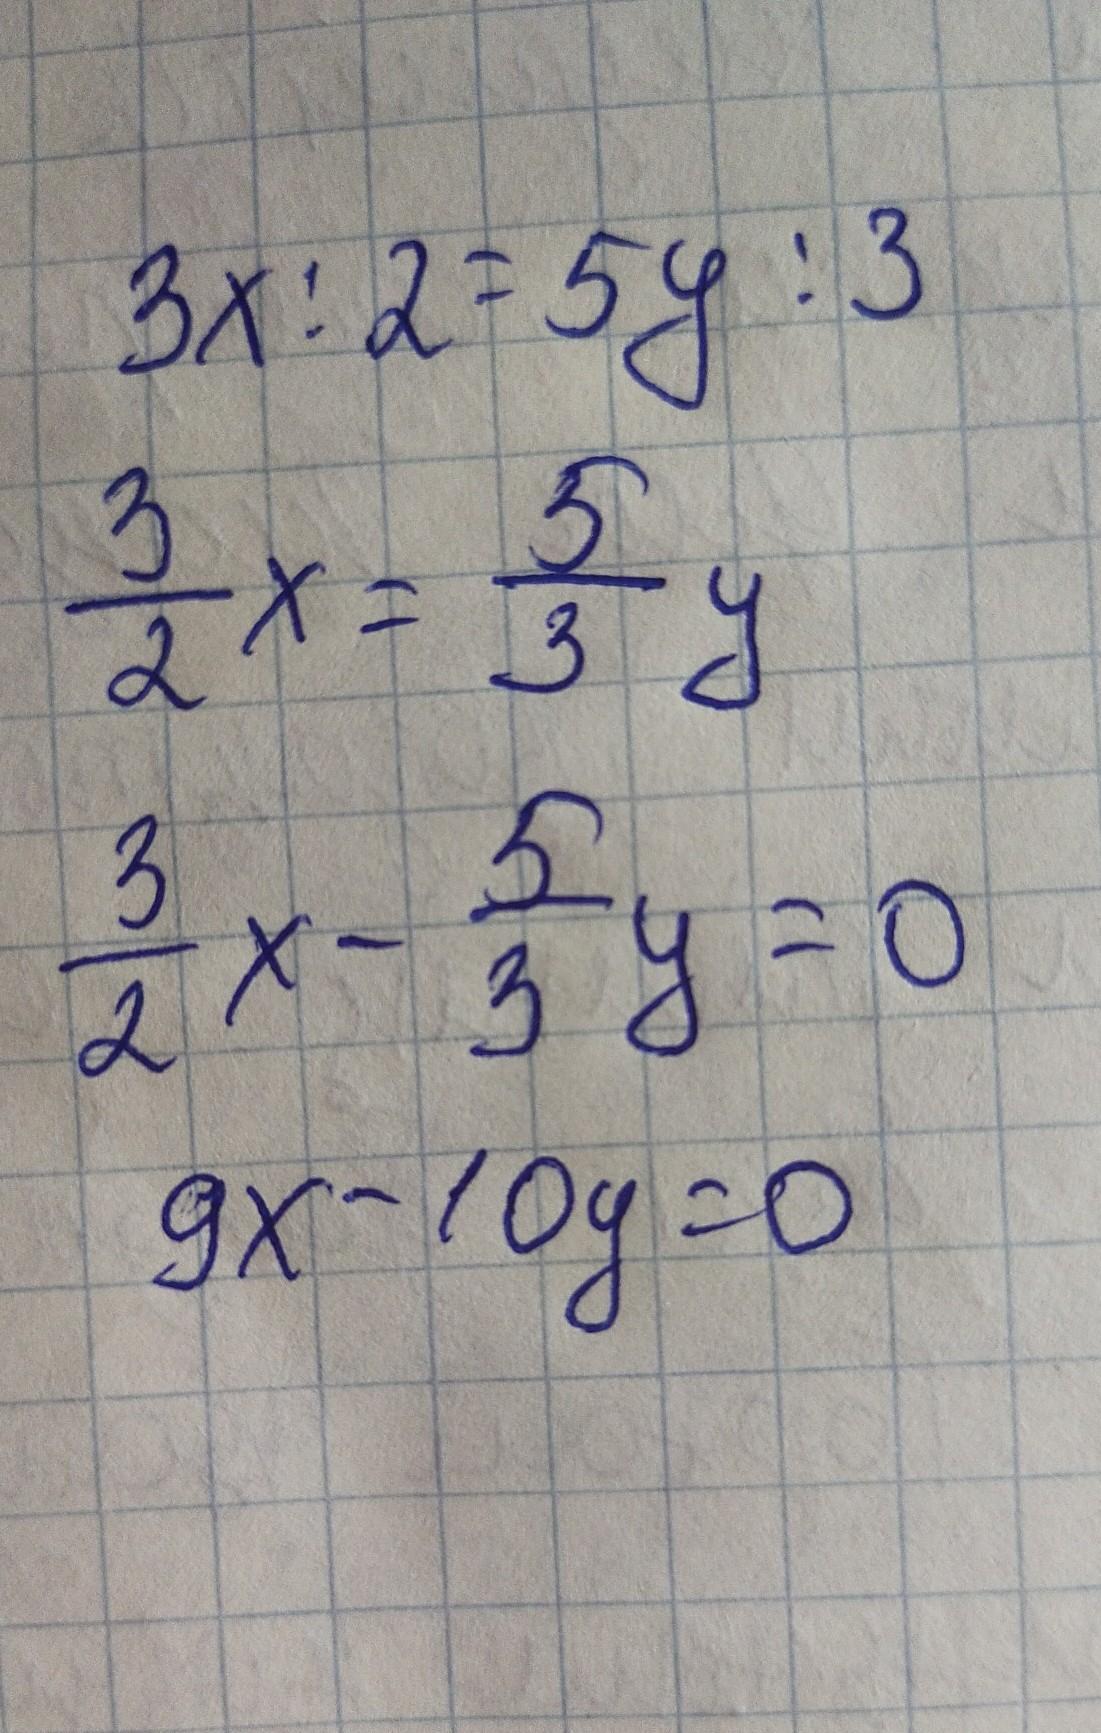 3x:2=5y:3
3/2 x = 5/3 y
3/2 x - 5/3 y = 0
9x-10y=0